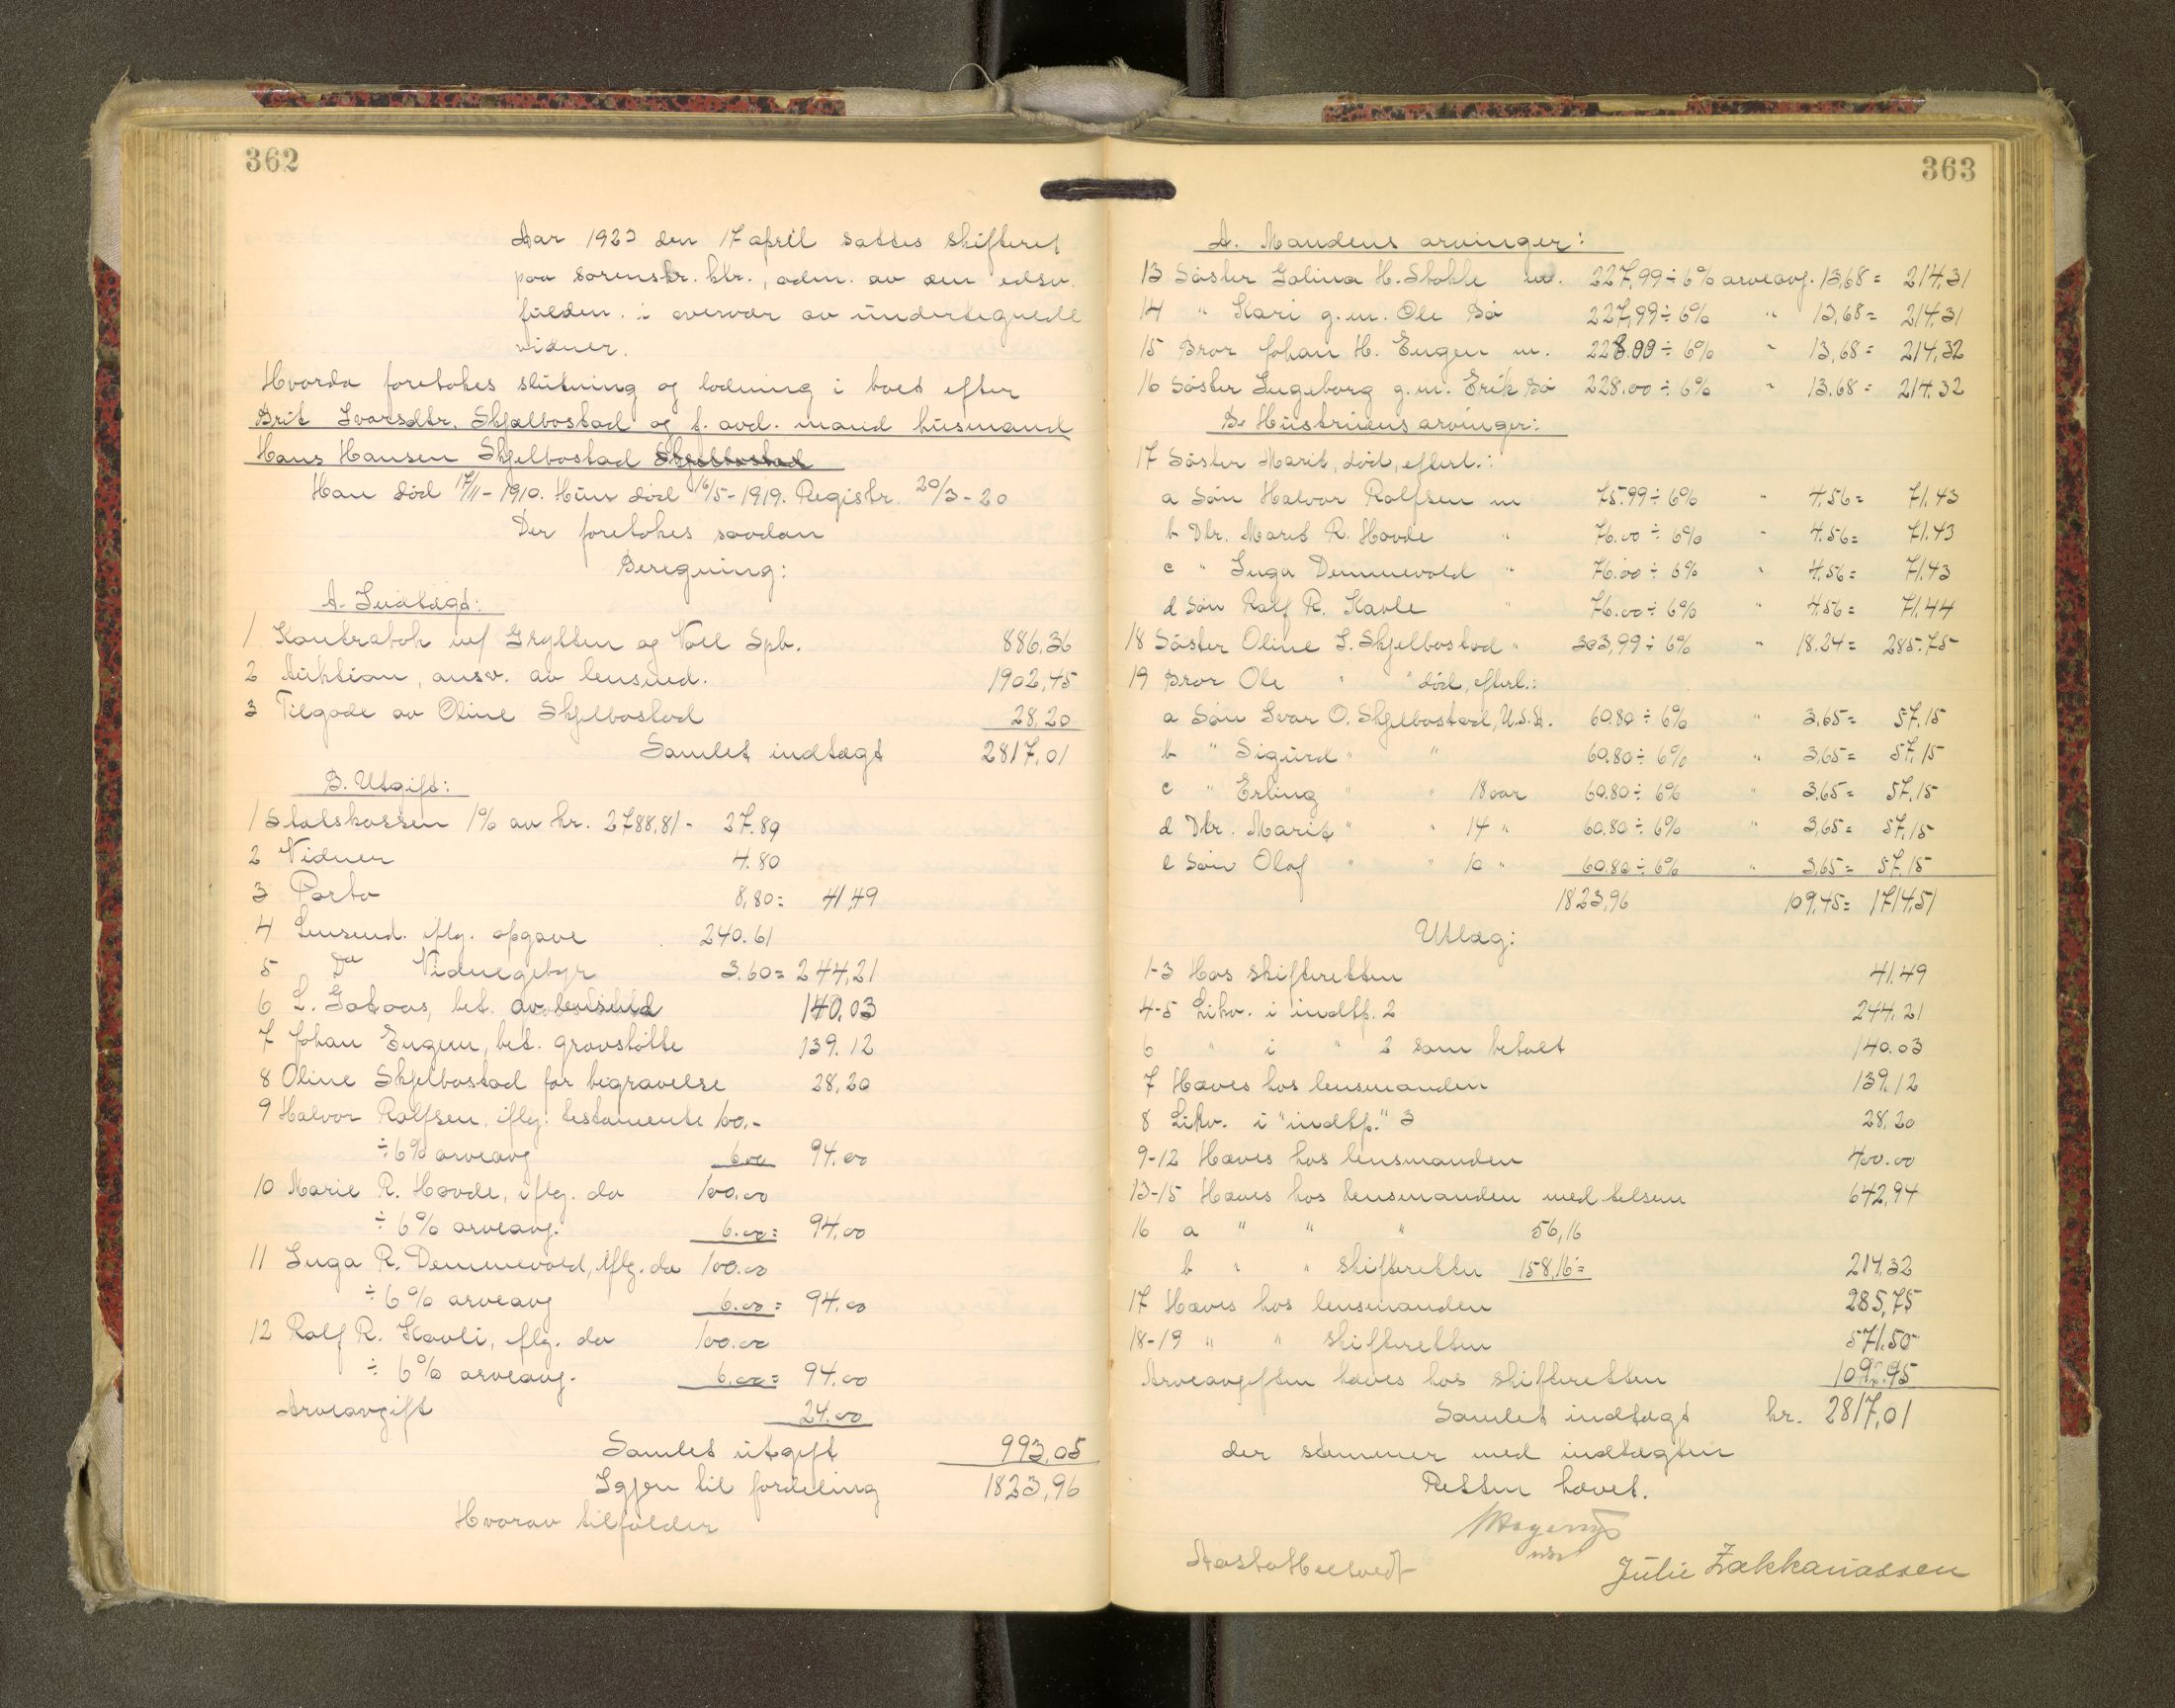 362
Aar 1922 den 17 april sattes skifteret
paa sorenskr. ktr., adm. av den edsv.
fuldm. i overvær av undertegnede
vidner.
Hvorda foretokes slutning og lodning i boet efter
Brit Ivarsdtr. Skjelbostad og f. avd. mand husmand
Hans Hansen Skjelbostad Skjelbostad
Han død 17/11-1910. Hun død 16/5-1919. Registr. 20/3-20
Der foretokes saadan
Beregning:
A. Indtægt:
1 Kontrabok m/ Grytten og Voll Spb. 886,36
2 Auktion, ansv. av lensmd. 1902,45
3 Tilgode av Oline Skjelbostad 28,20
Samlet indtægt 2817,01
B. Utgift:
1 Statskassen 1% av kr. 2788,81 - 27.89
2 Vidner 4.80
3 Porto 8,80= 41,49
4 Lensmd. iflg. opgave 240.61
5 Do Vidnegebyr 3.60= 244,21
6 L. Gataas, bet. av lensmd 140,03
7 Johan Engen, bet. gravstøtte 139.12
8 Oline Skjelbostad for begravelse 28,20
9 Halvor Rolfsen, iflg. testamente 100.-
÷ 6% arveavg 6.00 94.00
10 Marie R. Hovde, iflg. do 100.00
÷ 6% arveavg. 6.00= 94.00
11 Inga R. Demmevold, iflg. do 100.00
÷ 6% arveavg 6.00= 94.00
12 Rolf R. Kavli, iflg. do 100.00
÷ 6% arveavg. 6.00= 94.00
Arveavgift 24.00
Samlet utgift 993,05
Igjen til fordeling 1823,96
Hvorav tilfalder
363
A. Mandens arvinger:
13 Søster Galina H. Stokke m. 227,99 ÷ 6% arveavg. 13,68 = 214,31
14 " Kari g.m. Ole Bø 227,99 ÷ 6% " 13,68 = 214,31
15 Bror Johan H. Engen m. 228.00 ÷ 6% " 13,68 = 214,32
16 Søster Ingeborg g.m. Erik Bø 228.00 ÷ 6% " 13.68 = 214.32
B. Hustruens arvinger:
17 Søster Marit, død, efterl.:
a Søn Halvor Rolfsen m 75.99 ÷ 6% " 4.56 = 71.43
b Dtr. Marit R. Hovde " 76.00 ÷ 6% " 4.56= 71.43
c " Inga Demmevold " 76.00 ÷ 6% " 4.56= 71.43
d Søn Rolf R. Kavle " 76.00 ÷ 6% " 4.56= 71.44
18 Søster Oline I. Skjelbostad " 303,99 ÷ 6% " 18.24= 285.75
19 Bror Ole " " død, efterl.:
a Søn Ivar O. Skjelbostad, U.S.A. 60.80 ÷ 6% " 3.65= 57.15
b " Sigurd " " 60.80 ÷ 6% " 3.65= 57,15
c " Erling " " 18 aar 60.80 ÷ 6% " 3.65= 57,15
d Dtr. Marit " " 14 " 60.80 ÷ 6% " 3.65= 57,15
e Søn Olaf " " 10 " 60.80 ÷ 6% " 3.65= 57,15
1823,96 109.45= 1714,51
Utlæg:
1-3 Hos skifteretten 41.49
4-5 Likv. i indtp. 2 244.21
6 " i " 2 som betalt 140.03
7 Hæves hos lensmanden 139.12
8 Likv. i "indtp." 3 28.20
9-12 Hæves hos lensmanden 400.00
13-15 Hæves hos lensmanden med tilsm 642,94
16 a " " " 56,16
b " " skifteretten 158,16= 214,32
17 Hæves hos lensmanden 285,75
18-19 " " skifteretten 571.50
Arveavgiften hæves hos skifteretten 109.45
Samlet indtægt kr. 2817,01
der stemmer med indtægten
Retten hævet.
Julie Zakkariassen